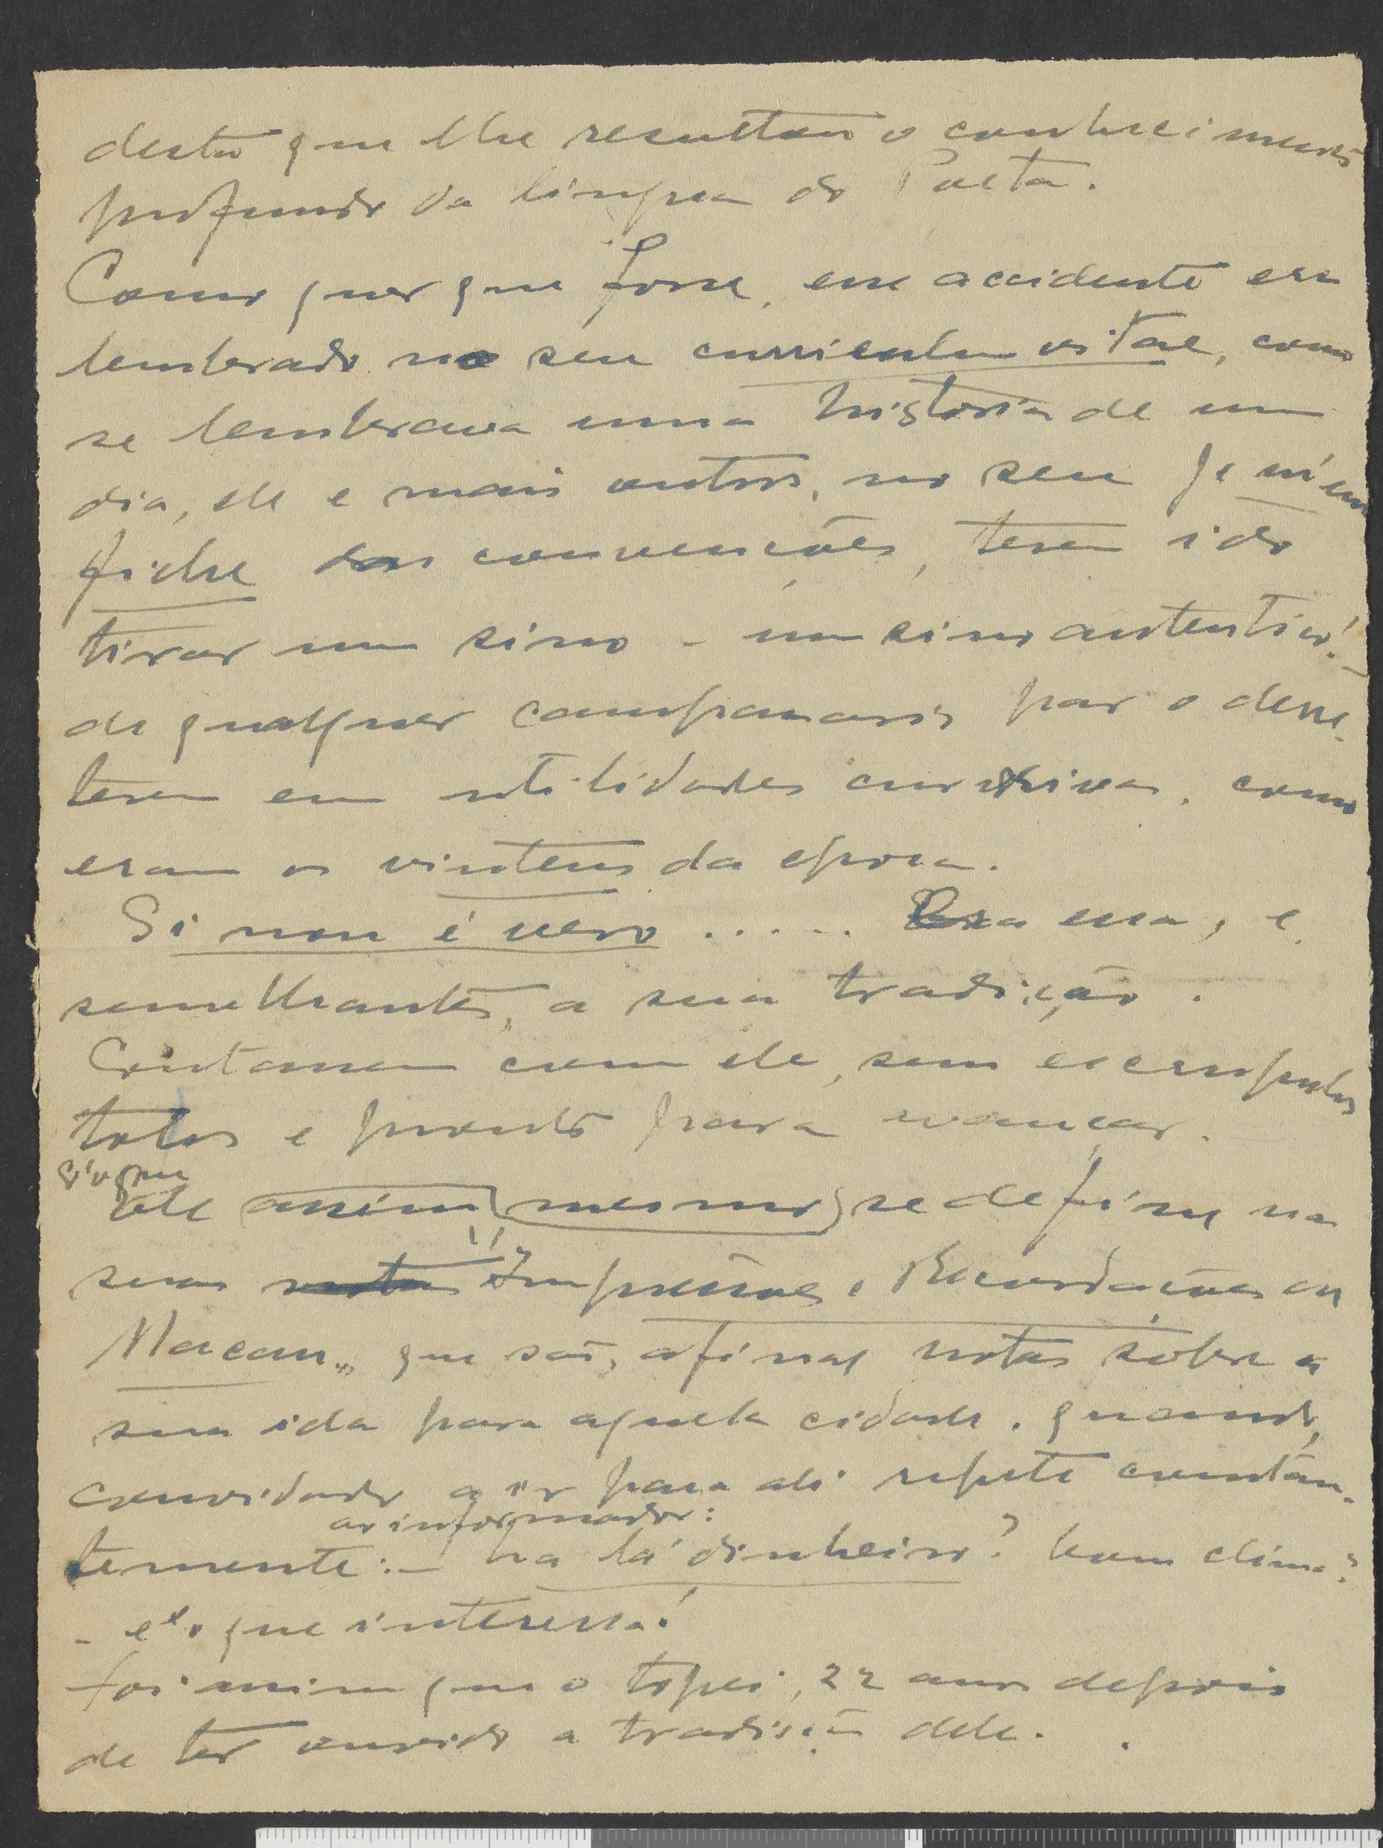 desta que lhe resultou o conhecimento
profundo da lingua do Poeta.
Como quer que fosse, esse accidente era
lembrado no seu curriculum vitae, como
se lembrava uma historia de um
dia, ele e mais outros, no seu je m'en
fiche das convenções, terem ido
tirar um sino - um sino autentico! -
de qualquer campanario par o derre-
terem em utilidades cursivas, como
eram os vintens da epoca.
Si non é vero ..... Era essa, e
semelhantes, a sua tradição.
Contassem com ele, sem escrupulos
tolos e pronto para avançar.
Ele assim mesmo se define na
suas Impressões e Recordações de
Macau,, que são, afinal notas sobre a
sua ida para aquela cidade. quando,
convidado a ir para ali repete constan-
ao informador:
temente: - ha lá dinheiro? bom clima?
- e' o que interessa!
Foi assim que o topei, 22 anos depois
de ter ouvido a tradição dele.